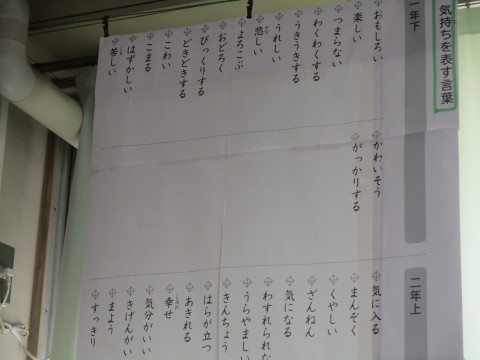 気持ちを表す言葉
一年下
おもしろい
楽しい
つまらない
わくわくする
うきうきする
うれしい
悲しい
よろこぶ
おどろく
びっくりする
どきどきする
こわい
こまる
はずかしい
苦しい
かわいそう
がっかりする
二年上
気に入る
まんぞく
くやしい
ざんねん
気になる
わすれられな
うらやましい
きんちょう
はらが立つ
あきれる
幸せ
気分がいい
きげんがい
まよう
すっきり